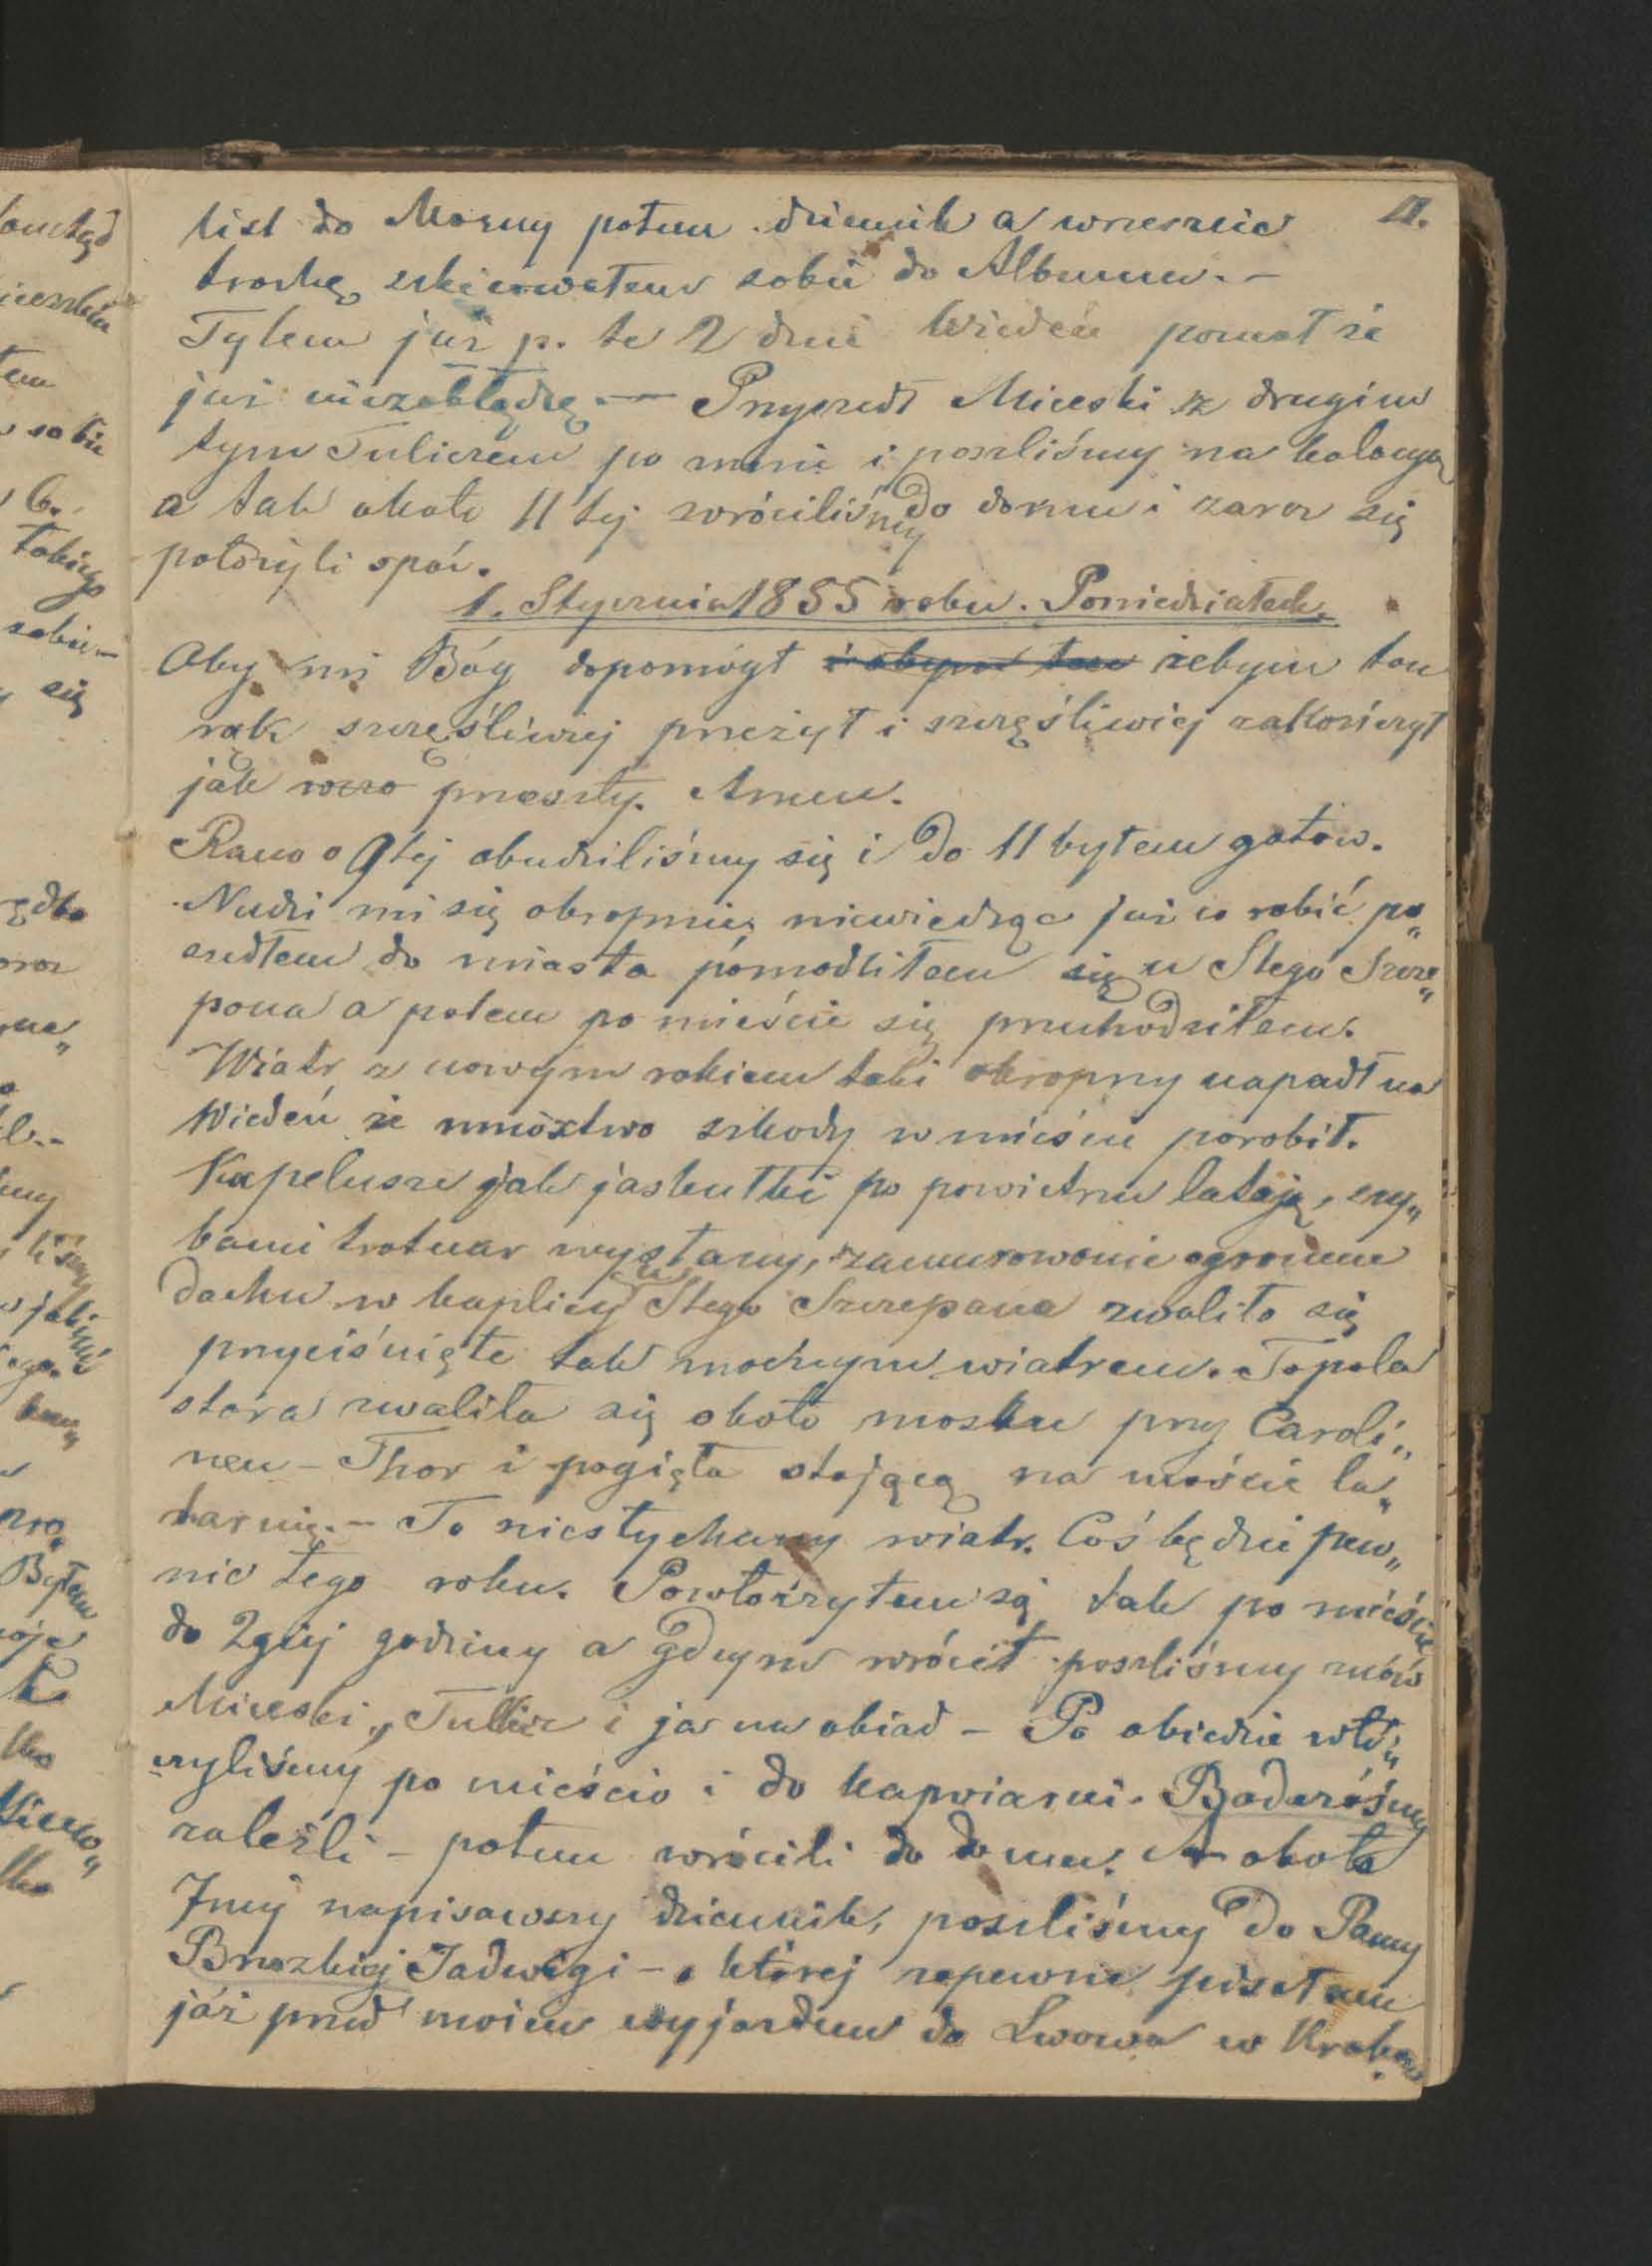 11.
list do Mamy potem dziennik a wreszcie
trochę szkicowałem sobie do Albumu. -
Tylem już p. te 2 dni Wiedeń poznał że
już niezabłądzę. — Przyszedł Miceski z drugim
tym Tuliczem po mnie i poszliśmy na kolacyą
a tak około 11tej wróciliśmy do domu i zaraz się
położyli spać.
1. Stycznia 1855 roku. Poniedziałek.
Oby mi Bóg dopomógł i abym ten żebym ten
rok szczęśliwiej przeżył i szczęśliwiej zakończył
jak przeszły. Amen.
Rano o 9tej obudziliśmy się i do 11 byłem gotów.
Nudzi mi się okropnie, niewiedząc już co robić po„
szedłem do miasta pomodliłem się u Stego Szcze„
pana a potem po mieście się przechodziłem.
Wiatr z nowym rokiem taki okropny napadł na
Wiedeń że mnóztwo szkody w mieście porobił.
Kapelusze jak jaskułki po powietrzu latają, szy„
bami trotuar wysłany, zamurowanie ogromne
dachu w kaplicy u Stego Szczepana zwaliło się
przyciśnięte tak mocnym wiatrem. Topola
stara zwaliła się około mostku przy Caroli„
nen - Thor i pogięła stojącą na moście la„
tarnię. - To niesłychany wiatr. Coś będzie pew„
nie tego roku. Powłóczyłem się tak po mieście
do 2giej godziny a gdym wrócił poszliśmy znów
Miceski, Tulicz i ja na obiad - Po obiedzie włó„
czyliśmy po mieście i do kawiarni. Baderóśmy
zaleźli - potem wrócili do domu. A około
7mej napisawszy dziennik, poszliśmy do Panny
Brzozkiej Jadwigi - o której zapewne pisałem
już przed moim wyjazdem do Lwowa w Krakowie